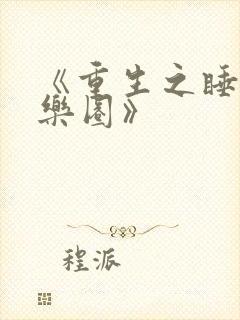 《重生之睡
樂園》
程派